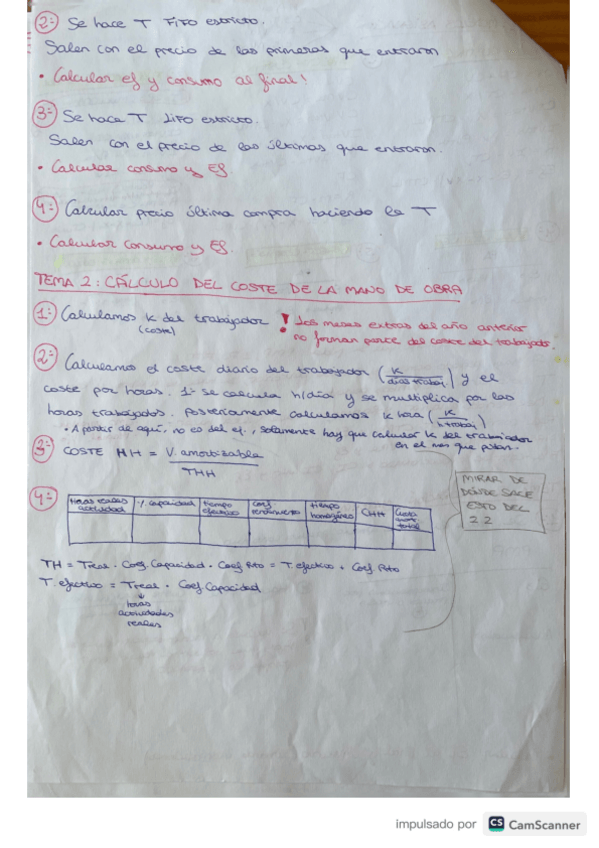 2º- Se hace T FIFO estricto.
Salen con el precio de las primeras que entraron
• Calcular ef y consumo al final!
3º- Se hace T LIFO estricto.
Salen con el precio de las últimas que entraron.
• Calcular consumo y Ef
4º- Calcular precio última compra haciendo la T
• Calcular consumo y Ef.
TEMA 2: CÁLCULO DEL COSTE DE LA MANO DE OBRA
1º- Calculamos K del trabajador
(coste)
! Los meses extras del año anterior
no forman parte del coste del trabajador.
2º- Calculamos el coste diario del trabajador (K/días trabaj) y el
coste por horas. 1º se calcula h/día y se multiplica por las
horas trabajadas. Posteriormente calculamos K hora (K/h trabaj)
• A partir de aquí, no es del ej., solamente hay que calcular K del trabajador
en el mes que pidan.
3º- COSTE HH = V. amortizable / THH
4º-
Horas reales actividad | % capacidad | tiempo efectivo | Coef rendimiento | tiempo homogéneo | CHH | Cuota amort total
MIRAR DE
DÓNDE SALE
ESTO DEL
2.2
TH = Treal · Coef. Capacidad · Coef Rto = T. efectivo · Coef Rto
T. efectivo = Treal · Coef Capacidad
↓
horas
actividades
reales
impulsado por CS CamScanner